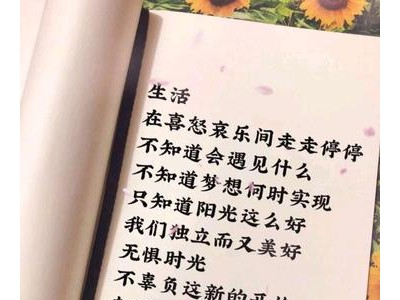 生活
在喜怒哀乐间走走停停
不知道会遇见什么
不知道梦想何时实现
只知道阳光这么好
我们独立而又美好
无惧时光
不辜负这新的